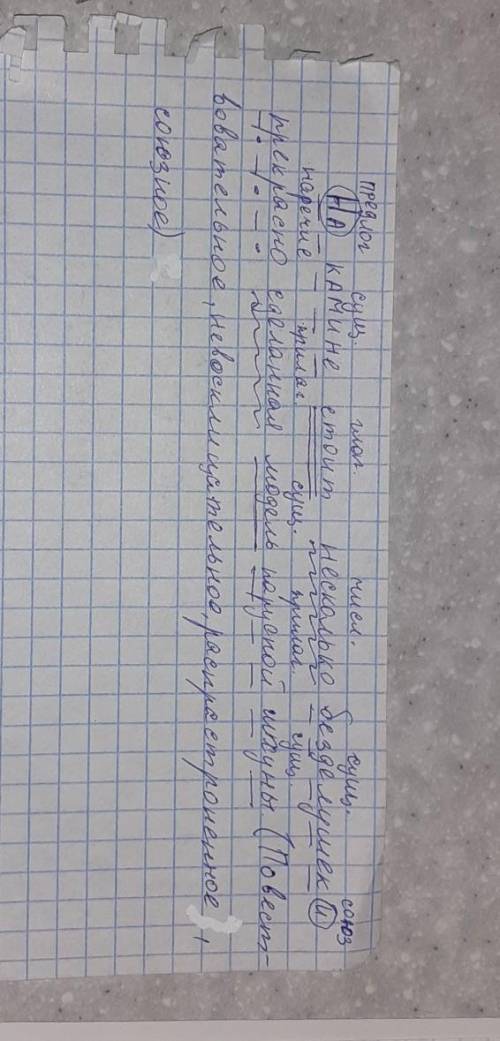 предлог сущ. глаг. числ. сущ. союз
НА камине стоит несколько безделушек и
наречие прилаг. сущ. прилаг. сущ.
прекрасно сделанная модель парусной шхуны. (Повест-
вовательное, невосклицательное, распрастроненное,
союзное)